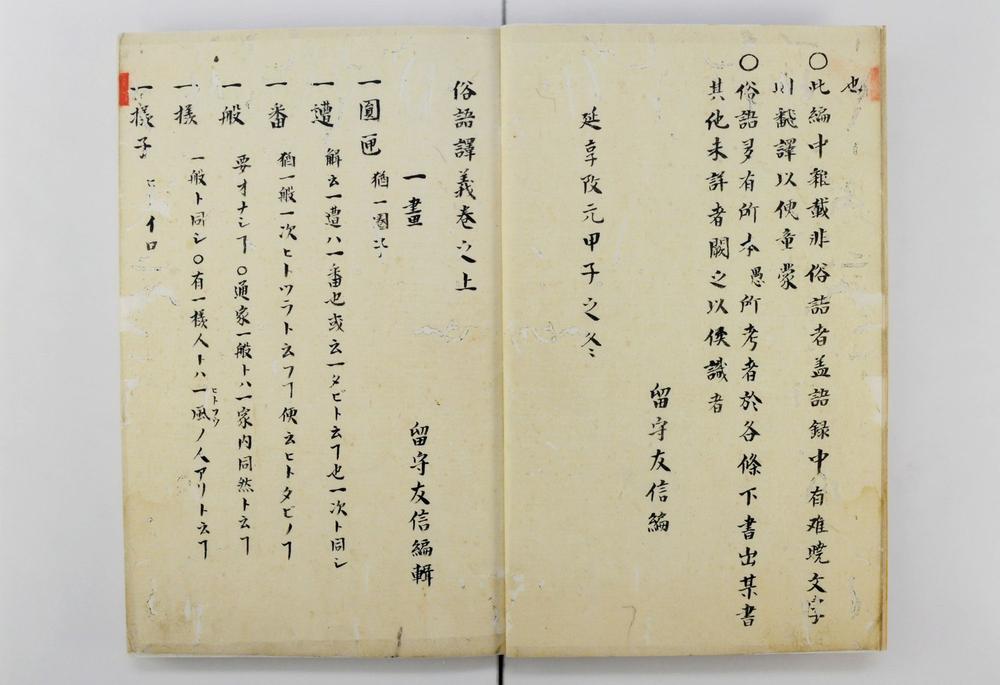 也
○此編中雜載非俗語者盖語録中有难曉文字
則飜譯以便童蒙
○俗語多有所本愚所考者於各條下書出某書
其他未詳者闕之以俟識者
延享改元甲子之冬
留守友信編
俗語譯義卷之上
一畫
留守友信編輯
一圓匝 猶一圈
一遭 解云一遭ハ一番也或云一タビト云ヿ也一次ト同シ
一番 猶一般一次ヒトツラト云フヿ便云ヒトタビノヿ
一般 要オナシヿ ○通家一般トハ一家内同然ト云ヿ
一樣 一般ト同シ○有一樣人トハ一風ノ人アリト云ヿ
ヒトフウ
一樣子 イロ